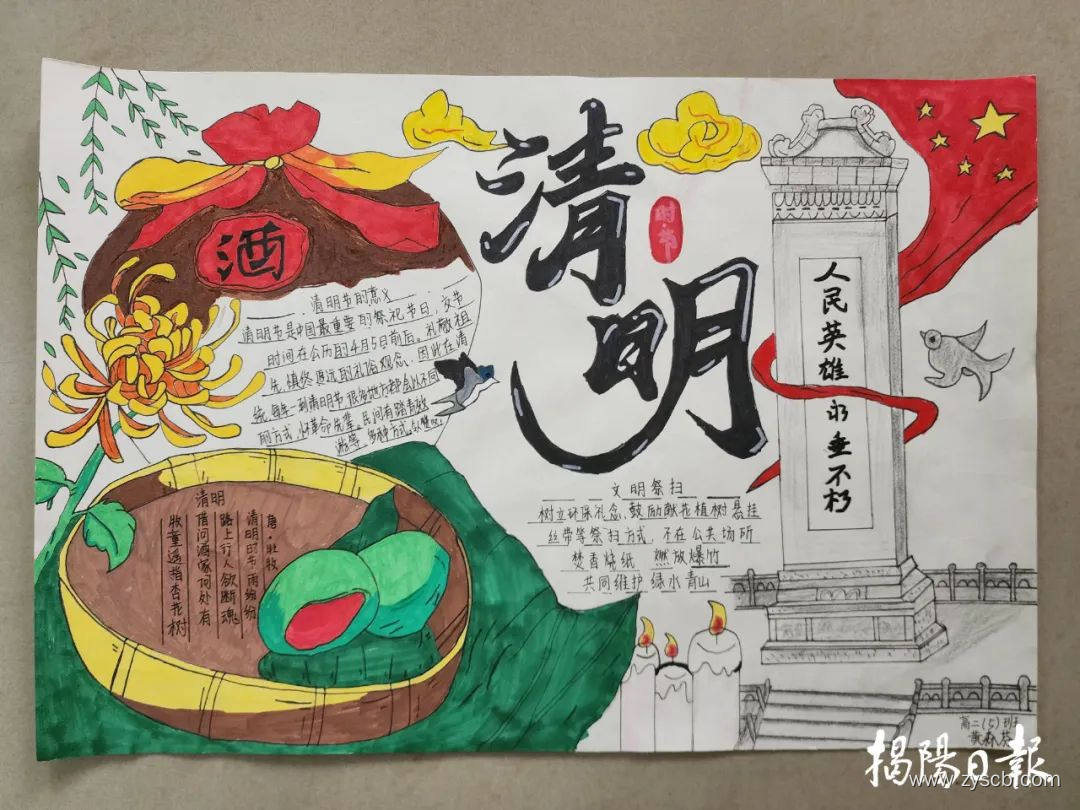 清明
时节
酒
清明节的意义
清明节是中国最重要的祭祝节日,交节
时间在公历的4月5日前后。礼敬祖
先,慎终追远的礼俗观念,因此在清
统,每年一到清明节很多地方都会以不同
的方式,怀革命先辈。民间有踏青效
游等,多种方式
清明
唐·杜牧
清明时节雨纷纷
路上行人欲断魂
借问酒家何处有
牧童遥指杏花树
文明祭扫
树立环保礼念、鼓励献花植树悬挂
丝带等祭扫方式,不在公共场所
焚香烧纸 燃放爆竹
共同维护绿水青山
人民英雄永垂不朽
高二(5)班
揭陽日報
www.zyscb.com